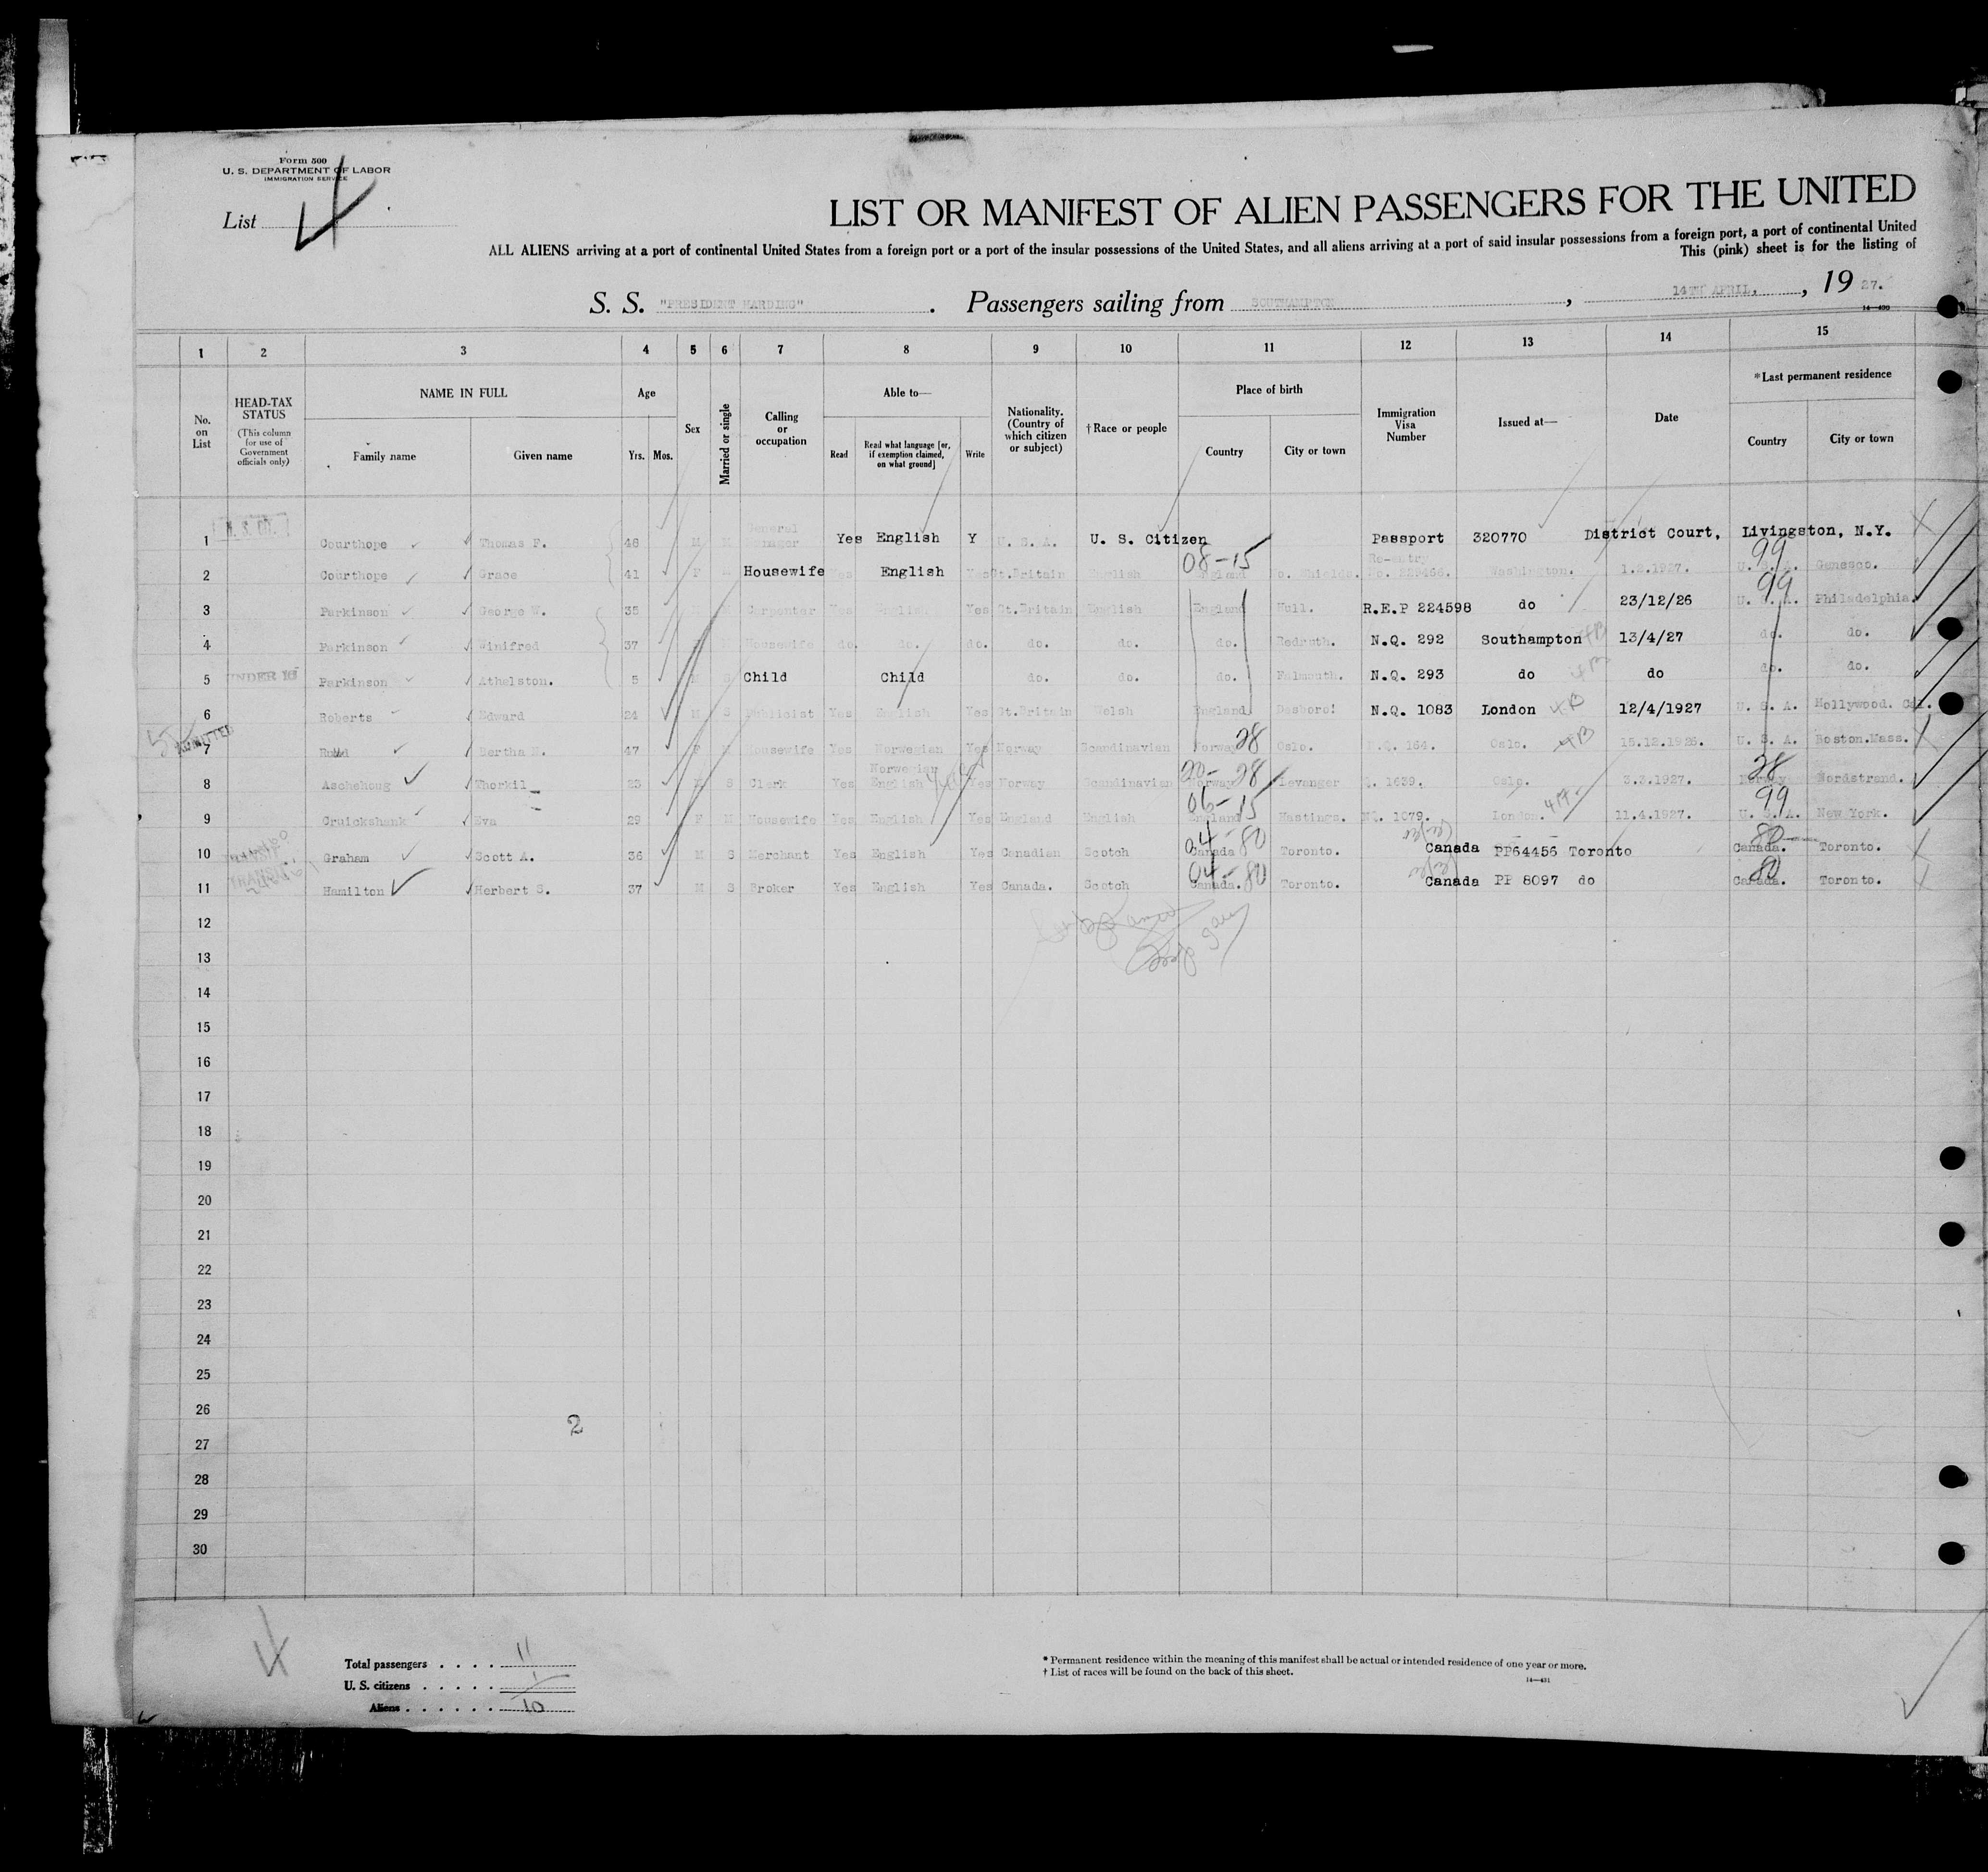 Form 500
U. S. DEPARTMENT OF LABOR
IMMIGRATION SERVICE
List 4
LIST OR MANIFEST OF ALIEN PASSENGERS FOR THE UNITED
ALL ALIENS arriving at a port of continental United States from a foreign port or a port of the insular possessions of the United States, and all aliens arriving at a port of said insular possessions from a foreign port, a port of continental United
This (pink) sheet is for the listing of
S. S. "PRESIDENT HARDING". Passengers sailing from SOUTHAMPTON, 14TH APRIL, 1927.
14—430
1 2 3 4 5 6 7 8 9 10 11 12 13 14 15
No. on List
HEAD-TAX STATUS (This column for use of Government officials only)
NAME IN FULL
Family name Given name
Age
Yrs. Mos.
Sex
Married or single
Calling or occupation
Able to—
Read Read what language [or, if exemption claimed, on what ground] Write
Nationality. (Country of which citizen or subject)
†Race or people
Place of birth
Country City or town
Immigration Visa Number
Issued at—
Date
*Last permanent residence
Country City or town
1 Courthope Thomas F. 46 M M General Manager Yes English Y U. S. A. U. S. Citizen Passport 320770 District Court, Livingston, N.Y.
2 Courthope Grace 41 F Housewife Yes English Yes Gt.Britain English 08-15 England So. Shields. Re-entry Washington. 1.2.1927. 99 U. S. A. Genesco.
3 Parkinson George W. 35 M Carpenter Yes English Yes Gt.Britain English England Hull. R.E.P 224598 do 23/12/26 99 U. S. A. Philadelphia.
4 Parkinson Winifred 37 Housewife do. do. do. do. do. do. Redruth. N.Q. 292 Southampton 4B 13/4/27 do. do.
5 UNDER 16 Parkinson Athelston. 5 Child Child do. do. do. Falmouth. N.Q. 293 do 4B do do. do.
6 Roberts Edward 24 M S Publicist Yes English Yes Gt.Britain Welsh England Desboro! N.Q. 1083 London 4B 12/4/1927 U. S. A. Hollywood. Cal.
7 ADMITTED Bertha M. 47 F Housewife Yes Norwegian Yes Norway Scandinavian Norway 28 Oslo. N.Q. 164. Oslo. 4B 15.12.1926. U. S. A. Boston.Mass.
8 Aschehoug Thorkil 23 M S Clerk Yes Norwegian English Yes Norway Scandinavian 20-28 Norway Levanger 1639. Oslo. 3.3.1927. 28 Norway Nordstrand.
9 Cruickshank Eva 29 F M Housewife Yes English Yes England English 06-15 England Hastings. NQ. 1079. London. 11.4.1927. 99 U. S. A. New York.
10 TRANSIT Graham Scott A. 36 M S Merchant Yes English Yes Canadian Scotch 04-80 Canada Toronto. Canada PP64456 Toronto 80 Canada. Toronto.
11 TRANSIT Hamilton Herbert S. 37 M S Broker Yes English Yes Canada. Scotch 04-80 Canada. Toronto. Canada PP 8097 do 80 Canada. Toronto.
12
13
14
15
16
17
18
19
20
21
22
23
24
25
26
2
27
28
29
30
Total passengers . . . . 11
U. S. citizens . . . . . 1
Aliens . . . . . . 10
* Permanent residence within the meaning of this manifest shall be actual or intended residence of one year or more.
† List of races will be found on the back of this sheet.
14—431